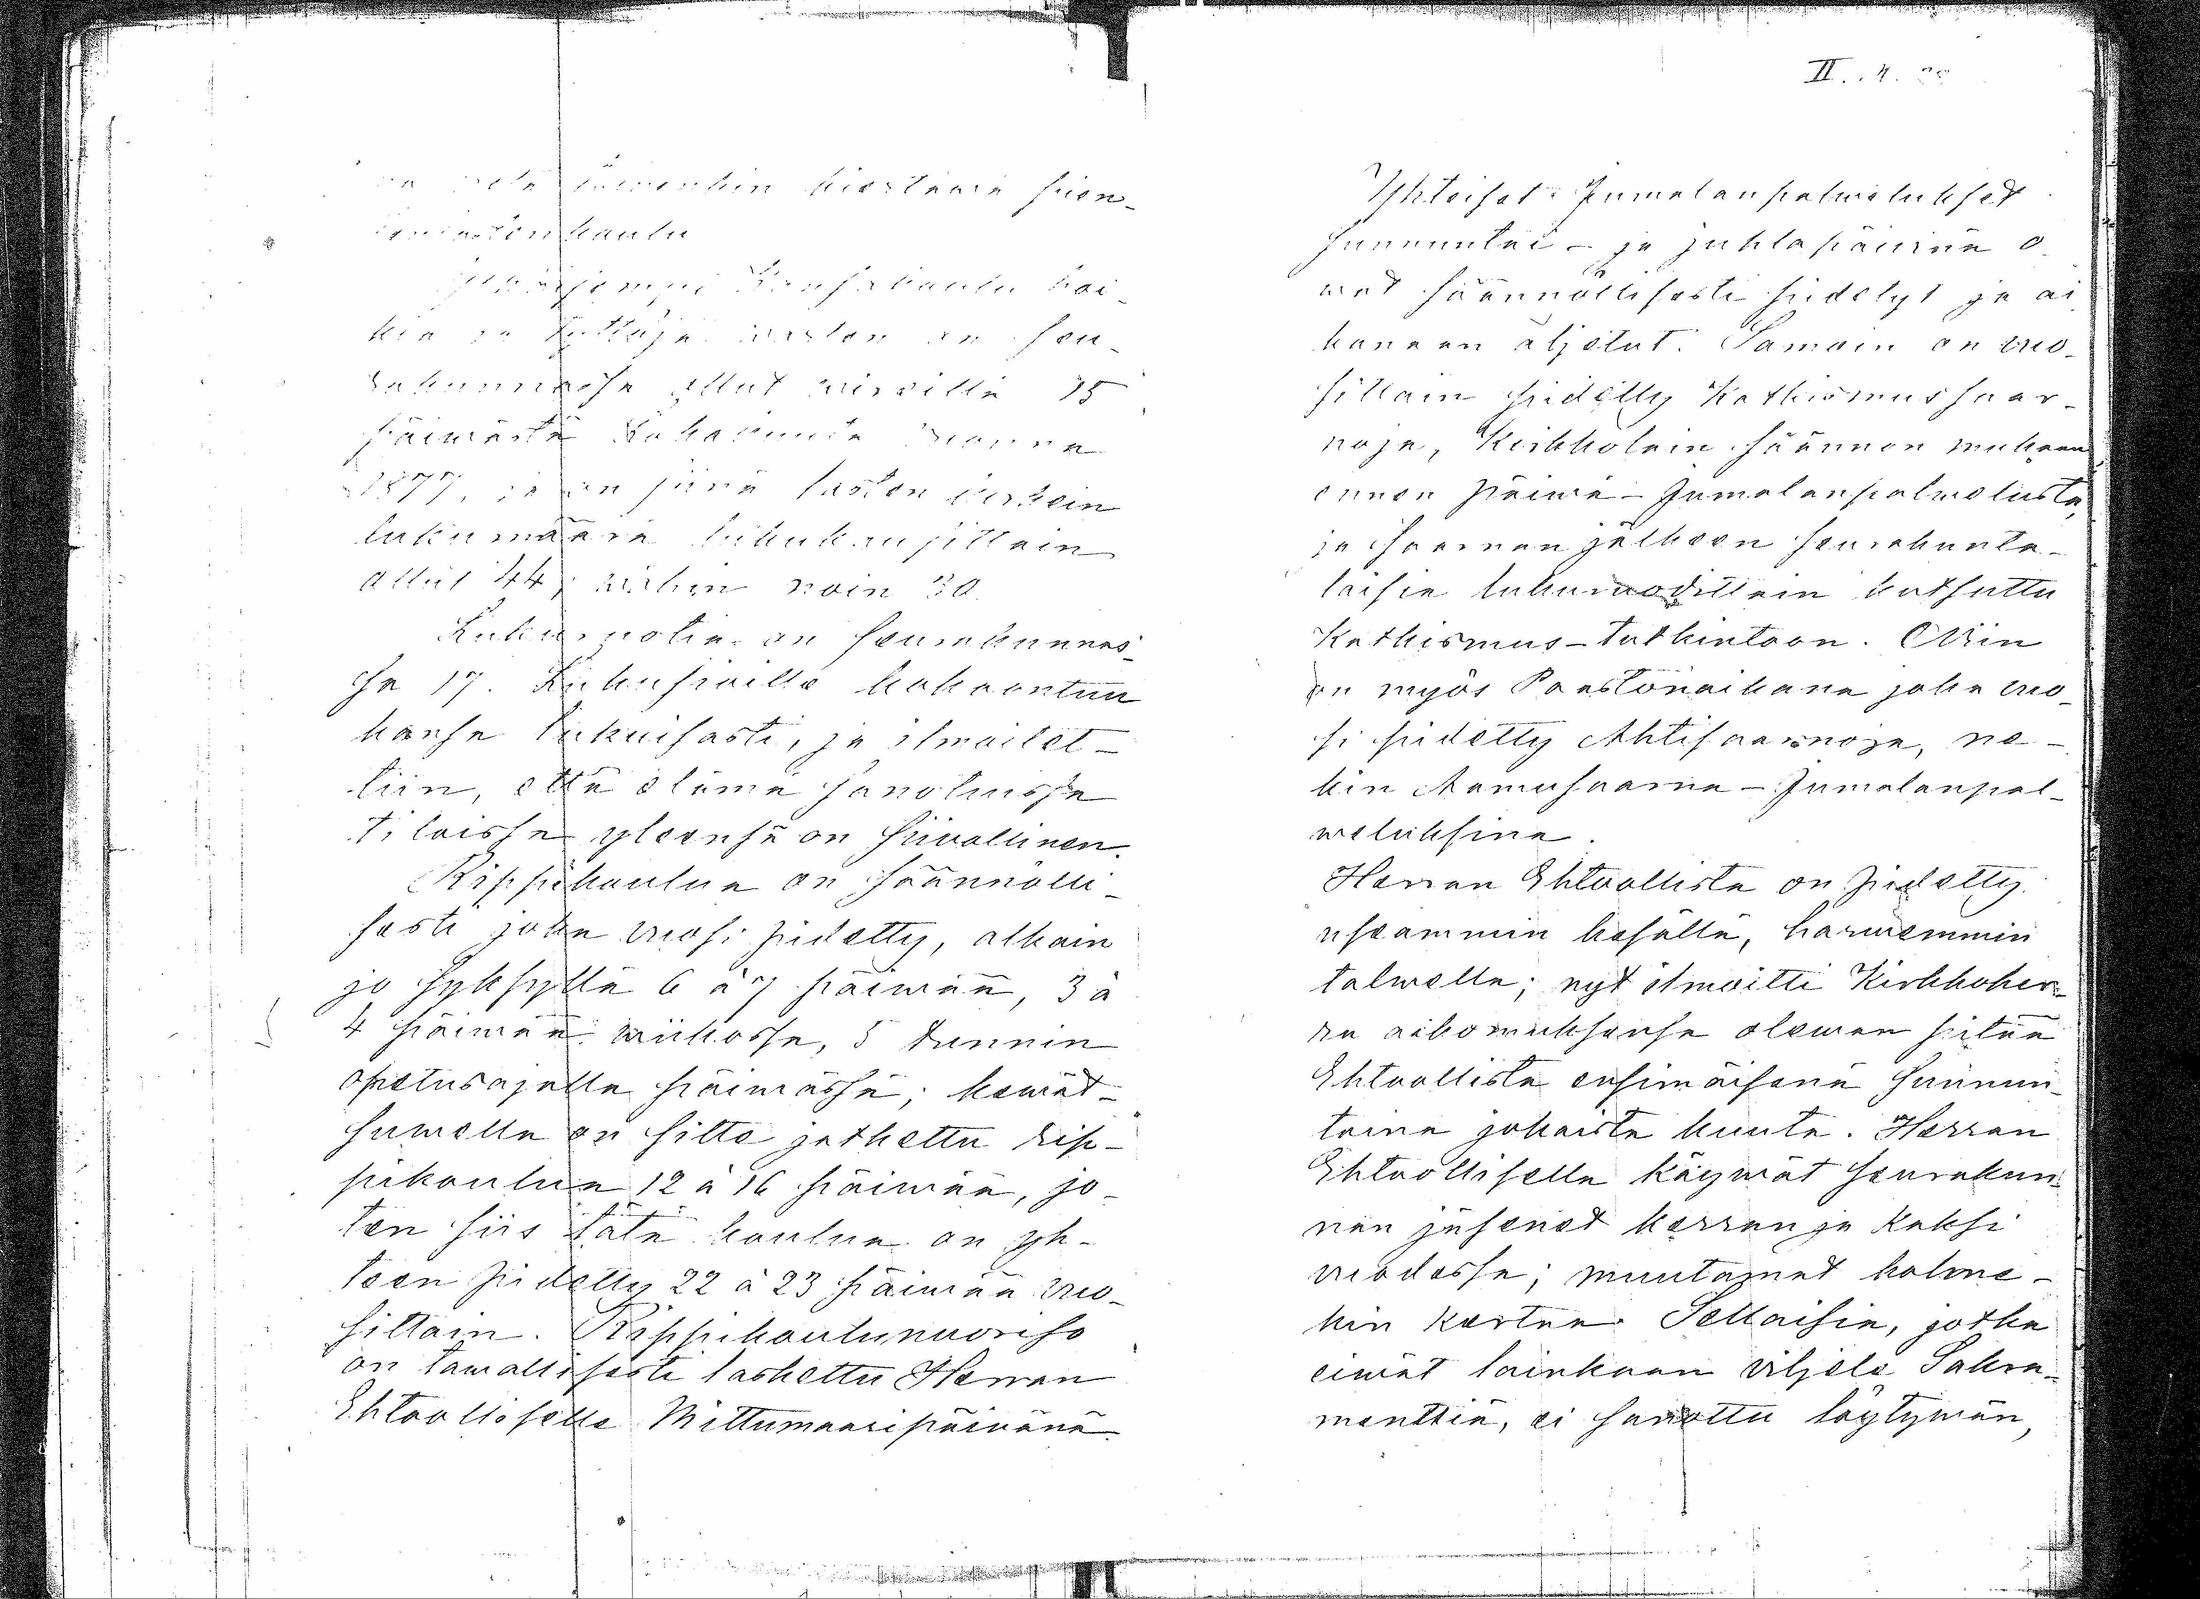 kiertävä pien-
koulu
Kansakoulu poi-
kia ja tyttöjä varten on seu-
rakunnassa ollut vireillä 15
päivästä Lokakuuta vuonna
1877, ja on siinä lasten
lukumäärä lukukausittain
ollut 44, noin 30.
Lukupiotia on seurakunnas-
sa 17. Lukusioille kokoontuu
kansa lukuisasti, ja ilmoitet-
tiin, että elämä sanotuissa
tiloissa yleensä on siivollinen.
Rippikoulua on säännölli-
sesti joka vuosi pidetty, alkain
jo syksyllä 6 à 7 päivää, 3 à
4 päivää wiikossa, 5 tunnin
opetusajalla päiwässä; kewät-
suwella on sitte jatkettu rip-
pikoulua 12 à 16 päiwää, jo-
ten siis tätä koulua on yh-
teen pidetty 22 à 23 päiwää vuo-
sittain. Rippikoulunuoriso
on tawallisesti laskettu Herran
Ehtoolliselle Mittumaaripäivänä.
II. 4.
Yhteiset Jumalanpalwelukset
sunnuntai- ja juhlapäivinä o-
wat säännöllisesti pidetyt ja ai-
kanaan aljetut. Samoin on vuo-
sittain pidetty Katkismussaar-
noja, Kirkkolain säännön mukaan
ennen päiwä-Jumalanpalwelusta,
ja saarnan jälkeen seurakunta-
laisia lukuwodittain kutsuttu
Katkismus-tutkintoon. Niin
on myös Paastonaikana joka vuo-
si pidetty Ahtisaarnoja, ne-
kin Aamusaarna-Jumalanpal-
weluksina.
Herran Ehtoollista on pidetty
useammin kesällä, harwemmin
talwella; nyt ilmoitti Kirkkoher-
ra aikomuksensa olewan pitää
Ehtoollista ensimäisenä sunnun-
taina jokaista kuuta. Herran
Ehtoollisella käywät seurakun-
nan jäsenet kerran ja kaksi
vuodessa; muutamat kolme-
kin kertaa. Sellaisia, jotka
eiwät lainkaan viljele Sakra-
menttiä, ei sanottu löytywän,